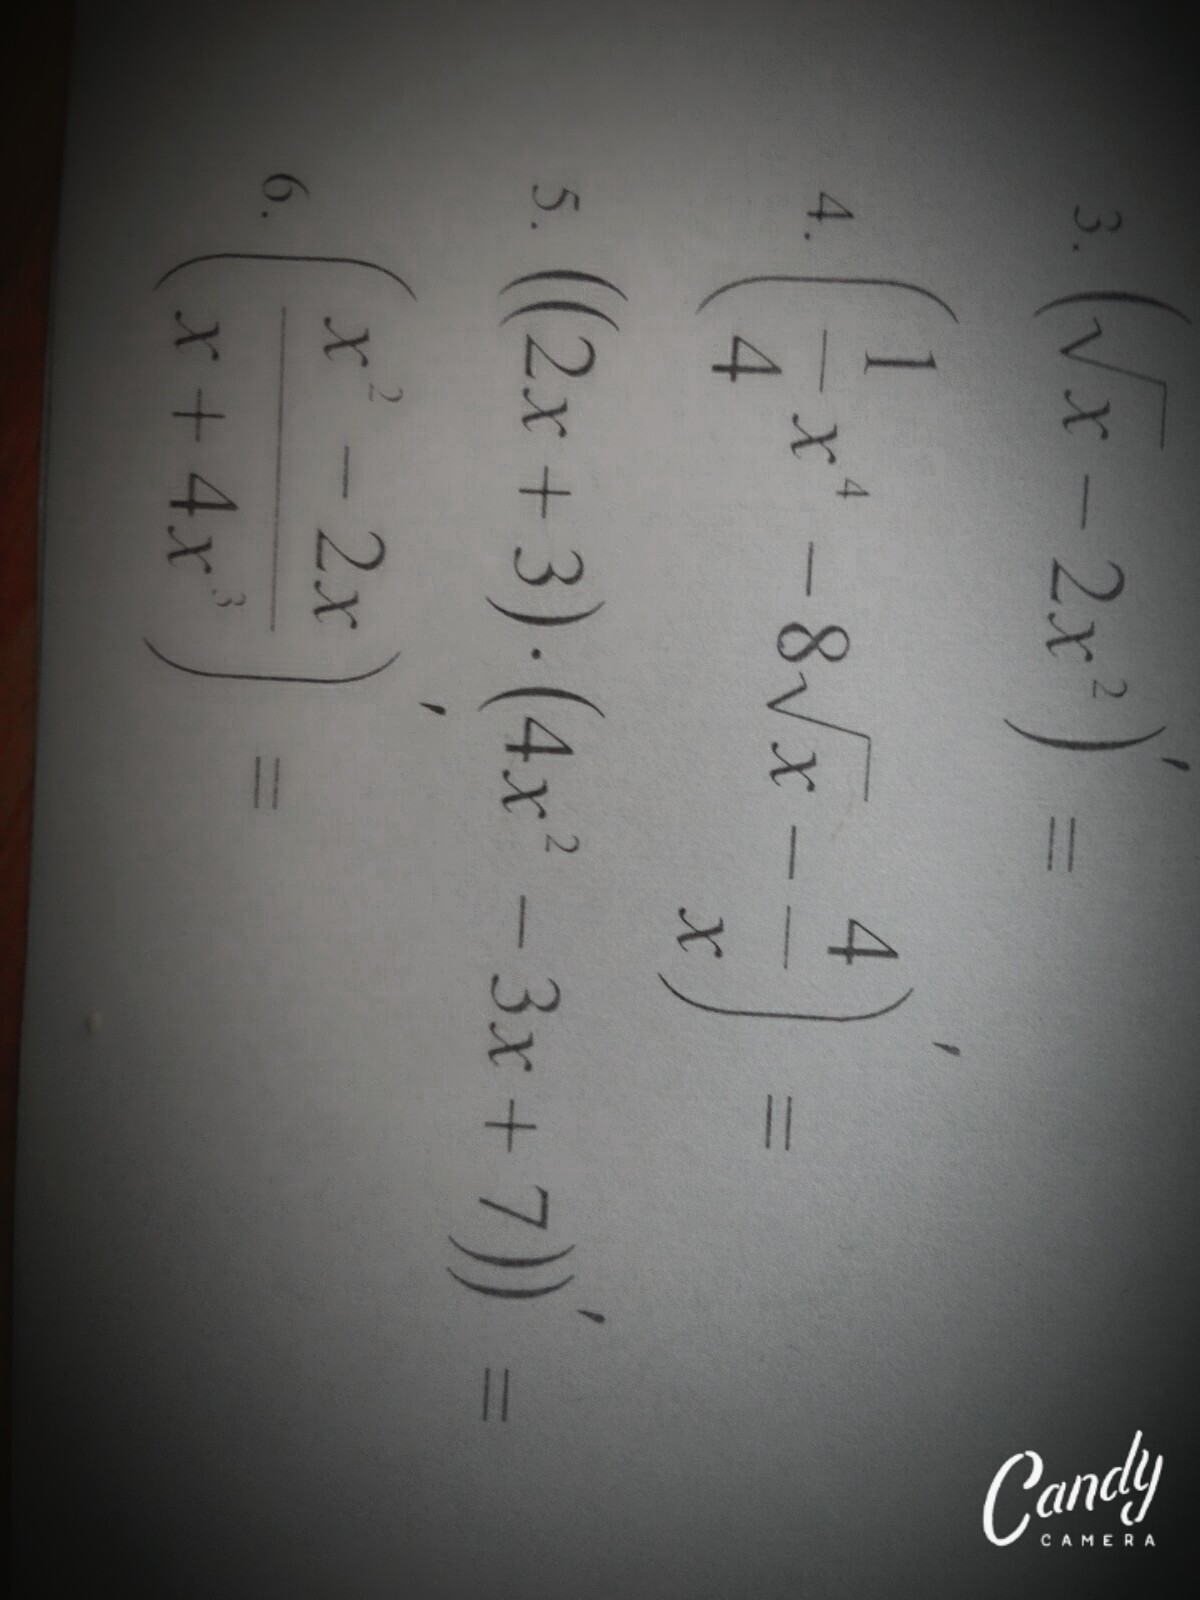 3. (√x − 2x²)′ =
4. (1/4 x⁴ − 8√x − 4/x)′ =
5. ((2x + 3) · (4x² − 3x + 7))′ =
6. ((x² − 2x)/(x + 4x³))′ =
Candy
CAMERA